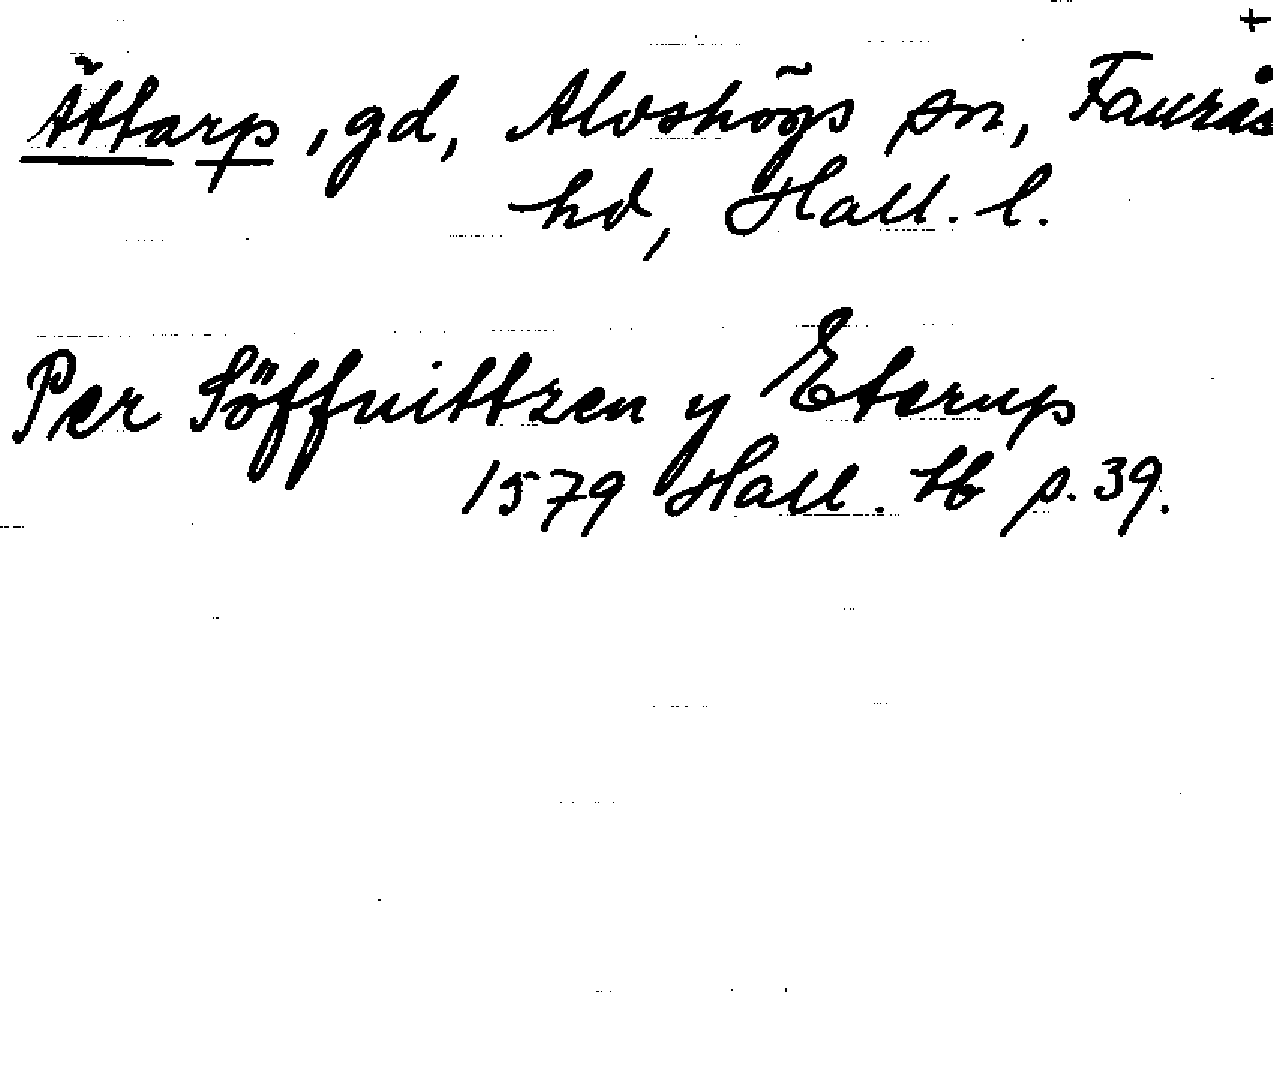 +
Ättarp, gd, Alvshögs sn, Faurås
hd, Hall. l.
Per Söffuittzen y Eterup
1579 Hall. tb p. 39.